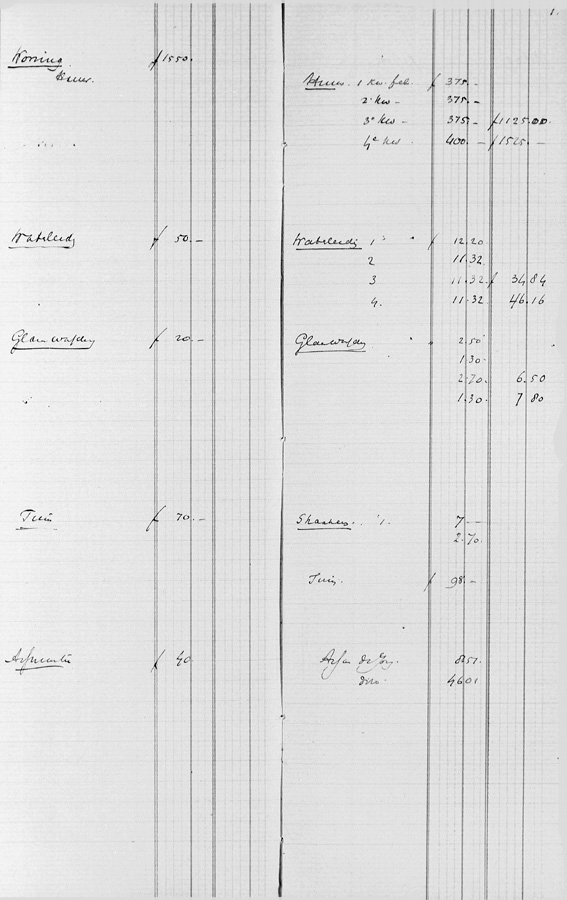 1.
Woning ƒ 1550.
Huur.
Waterleidg ƒ 50.—
Glazenwasschen ƒ 20.—
Tuin ƒ 70.—
Assurantie ƒ 40.
Huur 1 Kw. feb. ƒ 375.—
2e Kw — 375.—
3e Kw — 375.— ƒ 1125.00
4e Kw 400.— ƒ 1525.—
Waterleidg 1e " ƒ 12.20
2 11.32
3 11.32 ƒ 34.84
4. 11.32 46.16
2.50
1.30
2.70. 6.50
1.30. 7.80
7 —
2.70.
Tuin. ƒ 98.—
8.51.
dito 46.01